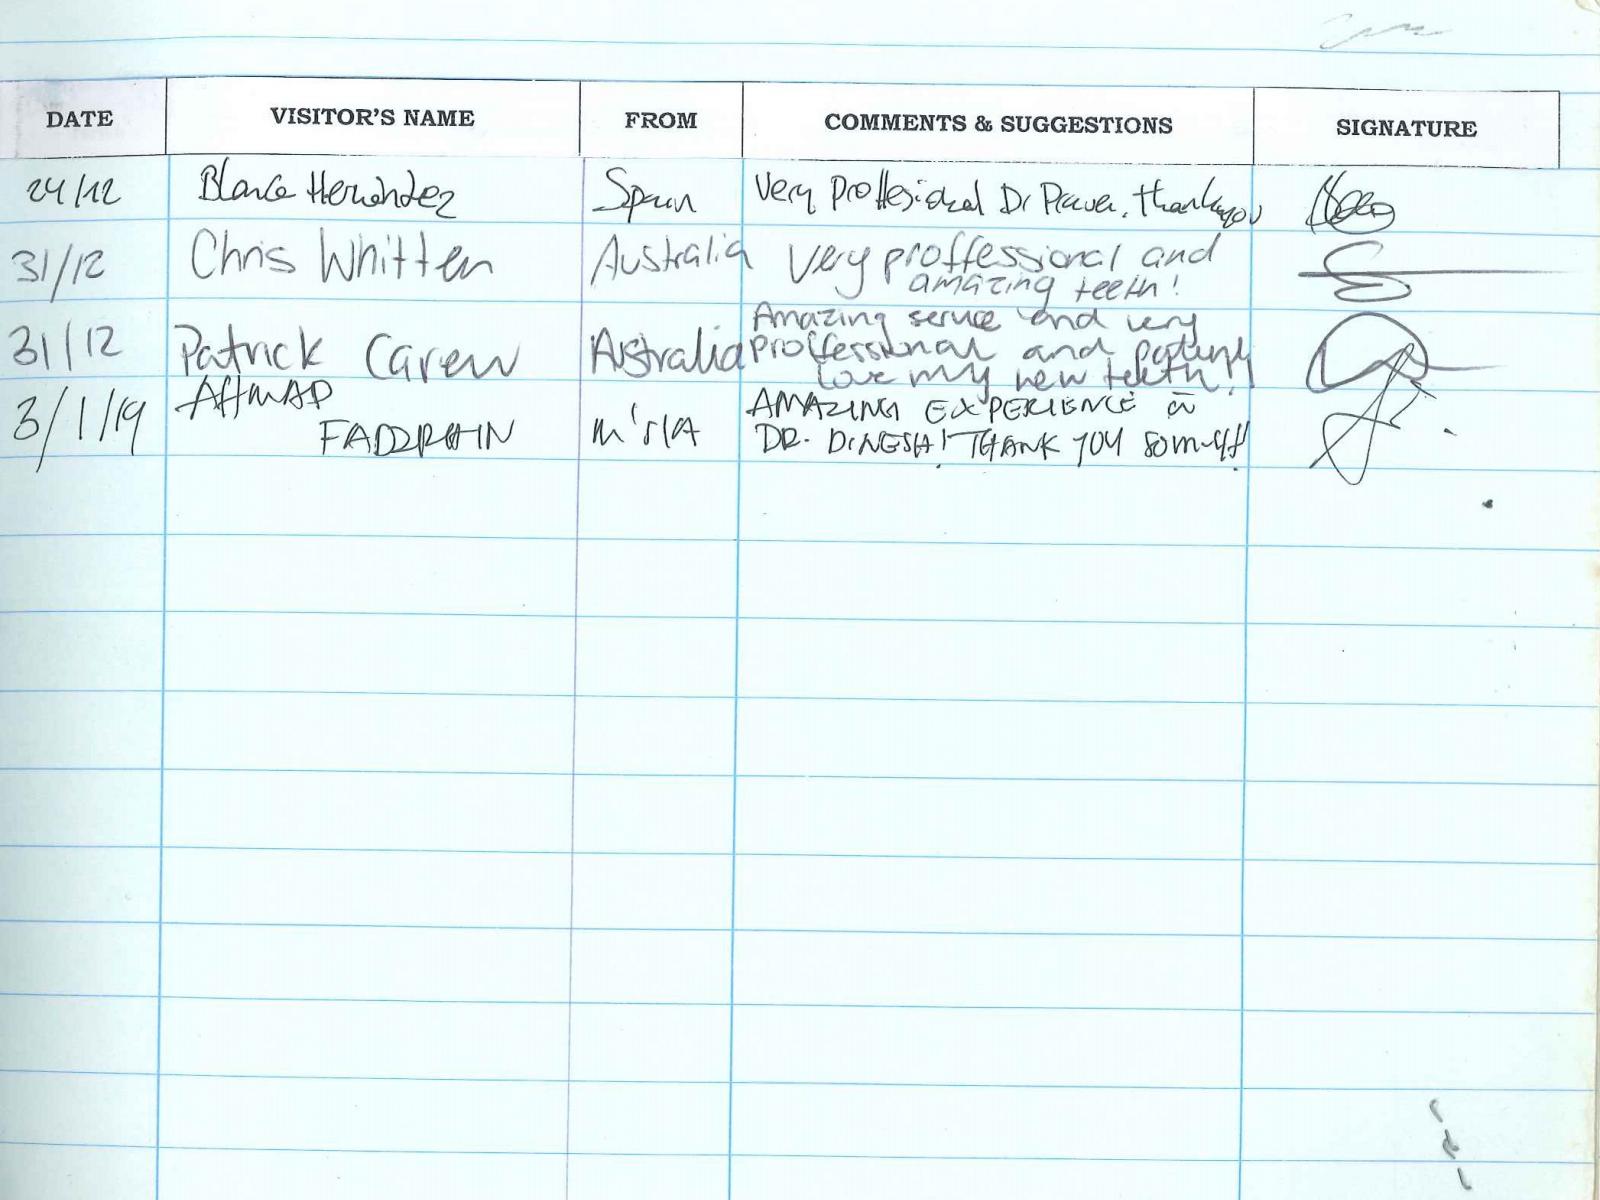 DATE VISITOR'S NAME FROM COMMENTS & SUGGESTIONS SIGNATURE
24/12 Blanca Hernández Spain Very Proffesional Dr Thank you
31/12 Chris Whitten Australia Very proffessional and
amazing teeth!
31/12 Patrick Carew Australia Amazing service and very
proffessional and
Love my new teeth!
3/1/19 AHMAD
FADZRAHIN M'SIA AMAZING EXPERIENCE
DR. DINESH! THANK YOU SO MUCH!